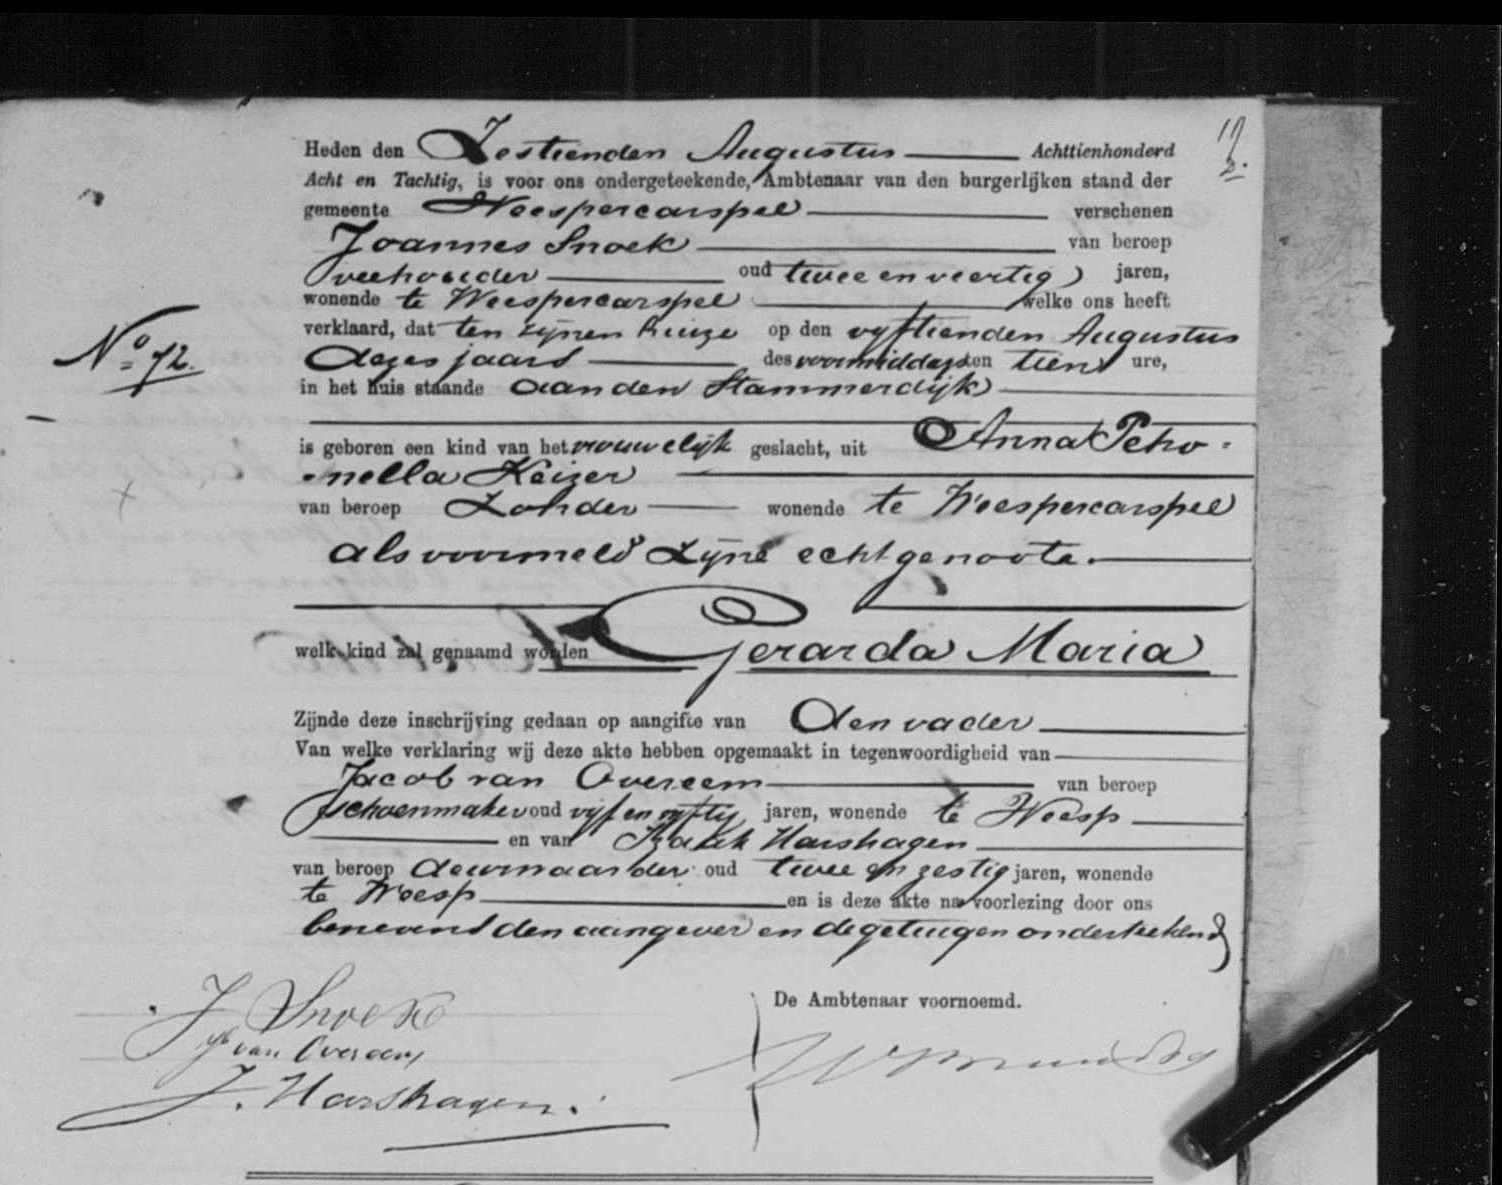 Heden den Zestienden Augustus Achttienhonderd
Acht en Tachtig, is voor ons ondergeteekende, Ambtenaar van den burgerlijken stand der
gemeente Weespercarspel verschenen
Joannes Snoek van beroep
veehouder oud twee en veertig jaren,
wonende te Weespercarspel welke ons heeft
verklaard, dat ten zijnen huize op den vyftienden Augustus
dezes jaars des voormiddags ten tien ure,
No. 72.
in het huis staande aan den Stammerdijk
is geboren een kind van het vrouwelijk geslacht, uit Anna Petro=
nella Keizer
van beroep Zonder wonende te Weespercarspel
als voormeld zijne echtgenoote.
welk kind zal genaamd worden Gerarda Maria
Zijnde deze inschrijving gedaan op aangifte van den vader
Van welke verklaring wij deze akte hebben opgemaakt in tegenwoordigheid van
Jacob van Overeem van beroep
schoenmaker oud vijf en vyftig jaren, wonende te Weesp
en van Izaak Harshagen
van beroep deurwaarder oud twee en zestig jaren, wonende
te Weesp en is deze akte na voorlezing door ons
benevens den aangever en de getuigen onderteekend
De Ambtenaar voornoemd.
J Snoek
van Overeem
J. Harshagen.